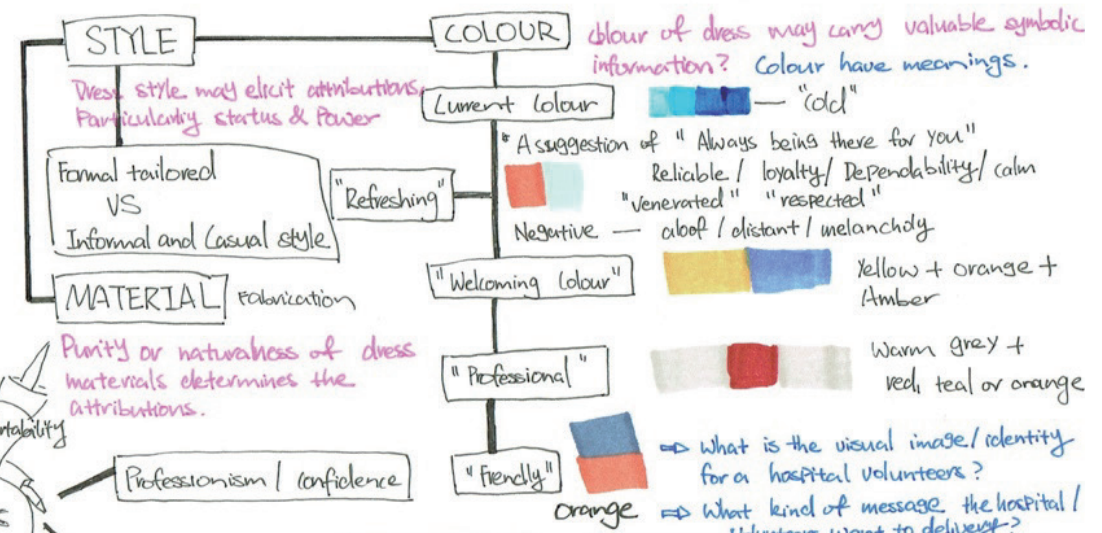 STYLE
Dress style may elicit attributions,
Particularity status & Power
Formal tailored
VS
Informal and Casual style
MATERIAL
Fabrication
Purity or naturalness of dress
materials determines the
attributions.
rtability
Professionism / confidence
COLOUR
colour of dress may carry valuable symbolic
information? Colour have meanings.
Current Colour
"cold"
"A suggestion of "Always being there for you"
Reliable / loyalty / Dependability / calm
"venerated" "respected"
Negertive — aloof / distant / melancholy
"Refreshing"
"Welcoming Colour"
Yellow + orange +
Amber
"Professional"
Warm grey +
red, teal or orange
"Frendly"
orange
⇒ What is the visual image / identity
for a hospital volunteers?
⇒ What kind of message the hospital /
Volunteers want to deliver?